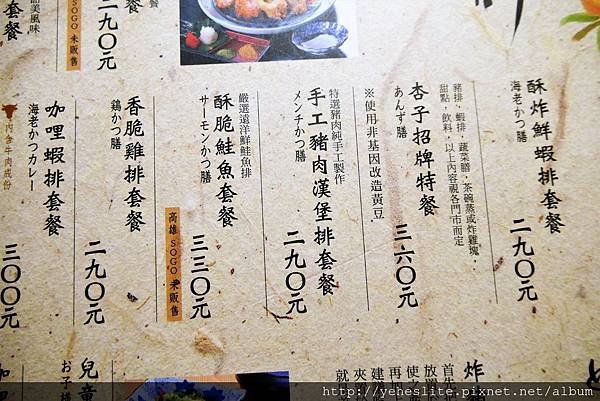 酥炸鮮蝦排套餐
海老かつ膳
二九〇元
豬排．蝦排．蔬菜膳．茶碗蒸或炸雞塊．
甜點．飲料．以上內容視各門市而定
杏子招牌特餐
あんず膳
三六〇元
※使用非基因改造黃豆
特選豬肉純手工製作
手工豬肉漢堡排套餐
メンチかつ膳
二九〇元
嚴選遠洋鮮鮭魚排
酥脆鮭魚套餐
サーモンかつ膳
三三〇元
高雄 SOGO 未販售
香脆雞排套餐
鶏かつ膳
二九〇元
咖哩蝦排套餐
海老かつカレー
三〇〇元
內含牛肉成份
套餐
二九〇元
SOGO 未販售
品美風味
元
炸
首先
放置
使之
再加
建
夾
就
兒童
お子様
咖
http://yeheslite.pixnet.net/album